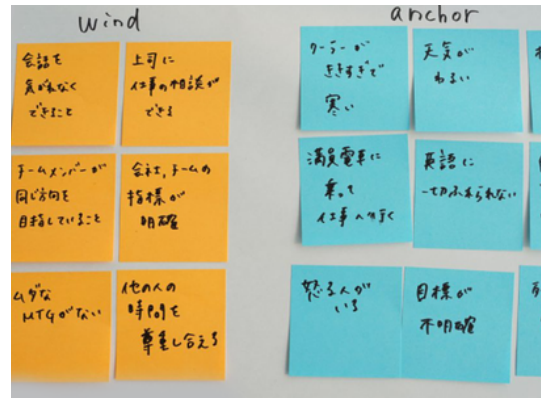 wind
会話を
気がねなく
できること
上司に
仕事の相談が
できる
チームメンバーが
同じ方向を
目指していること
会社、チームの
指標が
明確
ムダな
MTGがない
他の人の
時間を
尊重し合える
anchor
クーラーが
ききすぎて
寒い
天気が
わるい
満員電車に
乗って
仕事へ行く
英語に
一切ふれられない
怒る人が
いる
目標が
不明確